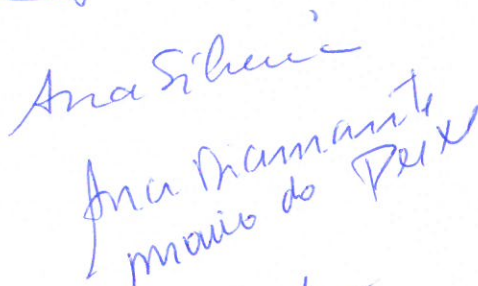 Ana Silveira
Ana Diamante
Mario do Peixe